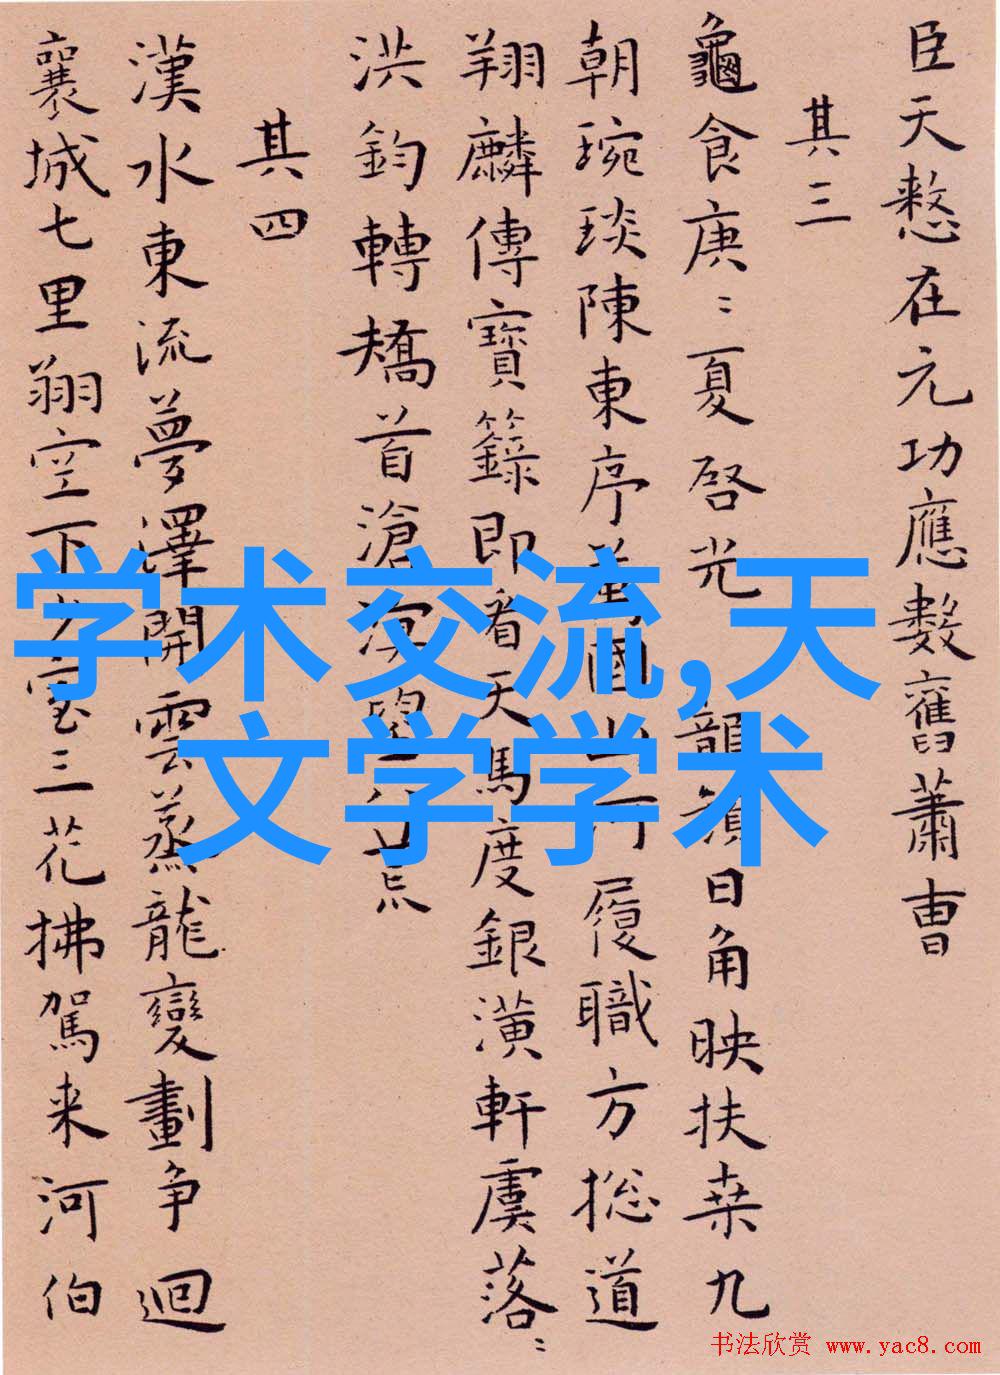 臣天憗在元功應數舊蕭曹
其三
龜食庚〻夏啓光龍顔日角映扶桒九
朝琬琰陳東序萬國山河履職方捴道
翔麟傳寶籙即看天馬度銀潢軒虞落〻
洪鈞轉矯首滄溟望八荒
其四
漢水東流夢澤開雲蒸龍變劃争迴
襄城七里翔空下少室三花拂駕来河伯
学术交流,天
文学学术
书法欣赏 www.yac8.com